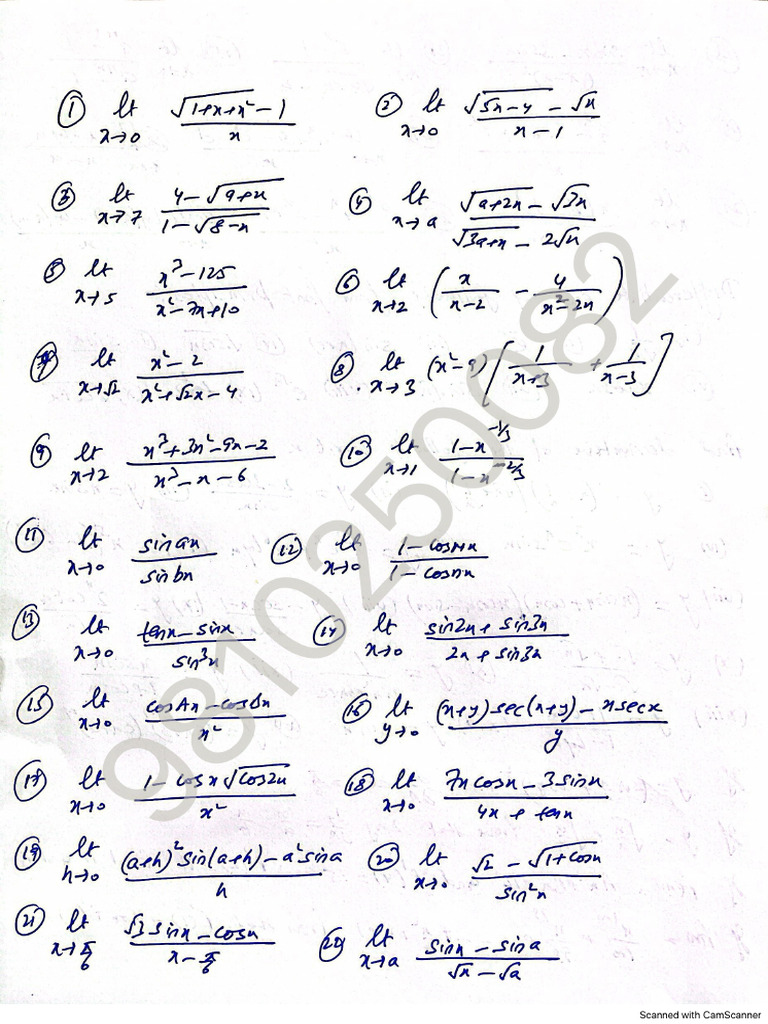 ① lt x→0 (√(1+x+x²) − 1)/x ② lt x→0 (√(5x−4) − √x)/(x−1)
③ lt x→7 (4 − √(9+x))/(1 − √(8−x)) ④ lt x→a (√(a+2x) − √3x)/(√(3a+x) − 2√x)
⑤ lt x→5 (x³−125)/(x²−7x+10) ⑥ lt x→2 (x/(x−2) − 4/(x²−2x))
⑦ lt x→√2 (x²−2)/(x²+√2x−4) ⑧ lt x→3 (x²−9)[1/(x+3) + 1/(x−3)]
⑨ lt x→2 (x³+3x²−9x−2)/(x³−x−6) ⑩ lt x→1 (1−x^(−1/3))/(1−x^(−2/3))
⑪ lt x→0 sin ax/sin bx ⑫ lt x→0 (1−cosmx)/(1−cosnx)
⑬ lt x→0 (tanx − sinx)/sin³x ⑭ lt x→0 (sin2x + sin3x)/(2x + sin3x)
⑮ lt x→0 (cosAx − cosBx)/x² ⑯ lt y→0 ((x+y)sec(x+y) − xsecx)/y
⑰ lt x→0 (1 − cosx√(cos2x))/x² ⑱ lt x→0 (7xcosx − 3sinx)/(4x + tanx)
⑲ lt h→0 ((a+h)² sin(a+h) − a²sina)/h ⑳ lt x→0 (√2 − √(1+cosx))/sin²x
㉑ lt x→π/6 (√3 sinx − cosx)/(x − π/6) lt x→a (sinx − sina)/(√x − √a)
9810250082
Scanned with CamScanner